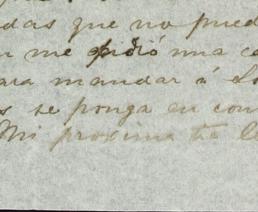 das que no pued
me pidió una c
para mandar á
se ponga en con
Mi proxima te